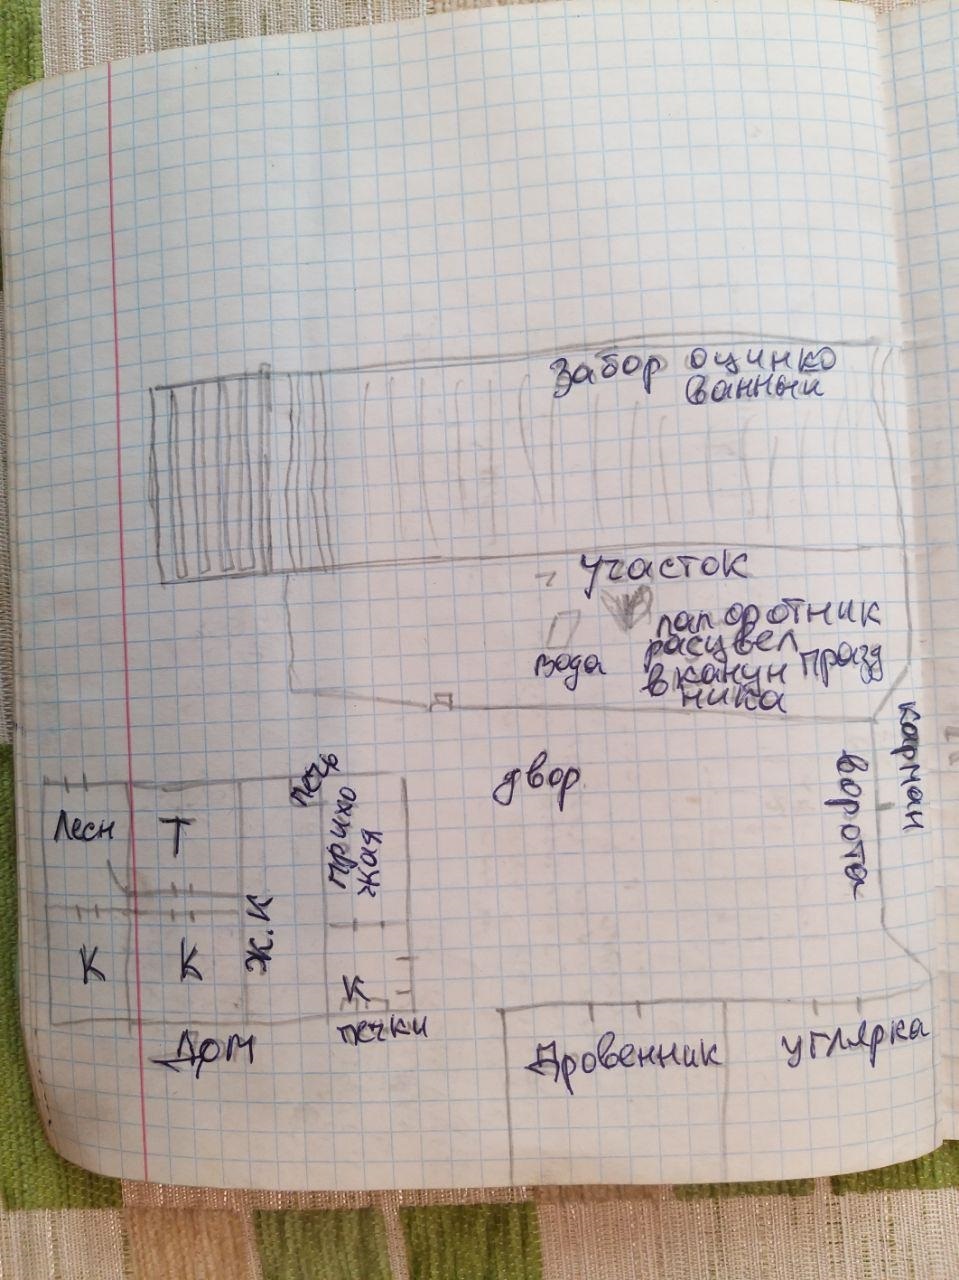 Забор оцинко
ванный
участок
папоротник
расцвел
в канун празд
ника
вода
карман
ворота
двор
печь
прихо
жая
Лесн
Т
К
К
Ж.К
К
печки
Дом
Дровенник
углярка